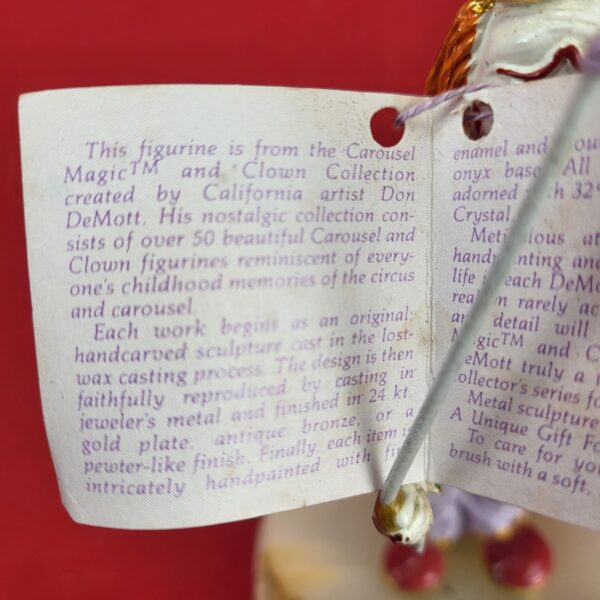 This figurine is from the Carousel
Magic™ and Clown Collection
created by California artist Don
DeMott. His nostalgic collection con-
sists of over 50 beautiful Carousel and
Clown figurines reminiscent of every-
one's childhood memories of the circus
and carousel.
Each work begins as an original;
handcarved sculpture cast in the lost-
wax casting process. The design is then
faithfully reproduced by casting in
jeweler's metal and finished in 24 kt.
gold plate, antique bronze, or a
pewter-like finish. Finally, each item is
intricately handpainted with
enamel and
onyx base. All
adorned 32
Crystal.
at
life each
rarely
detail will
Magic™ and
DeMott truly a
collector's series
Metal sculpture
A Unique Gift
To care for
brush with a soft,